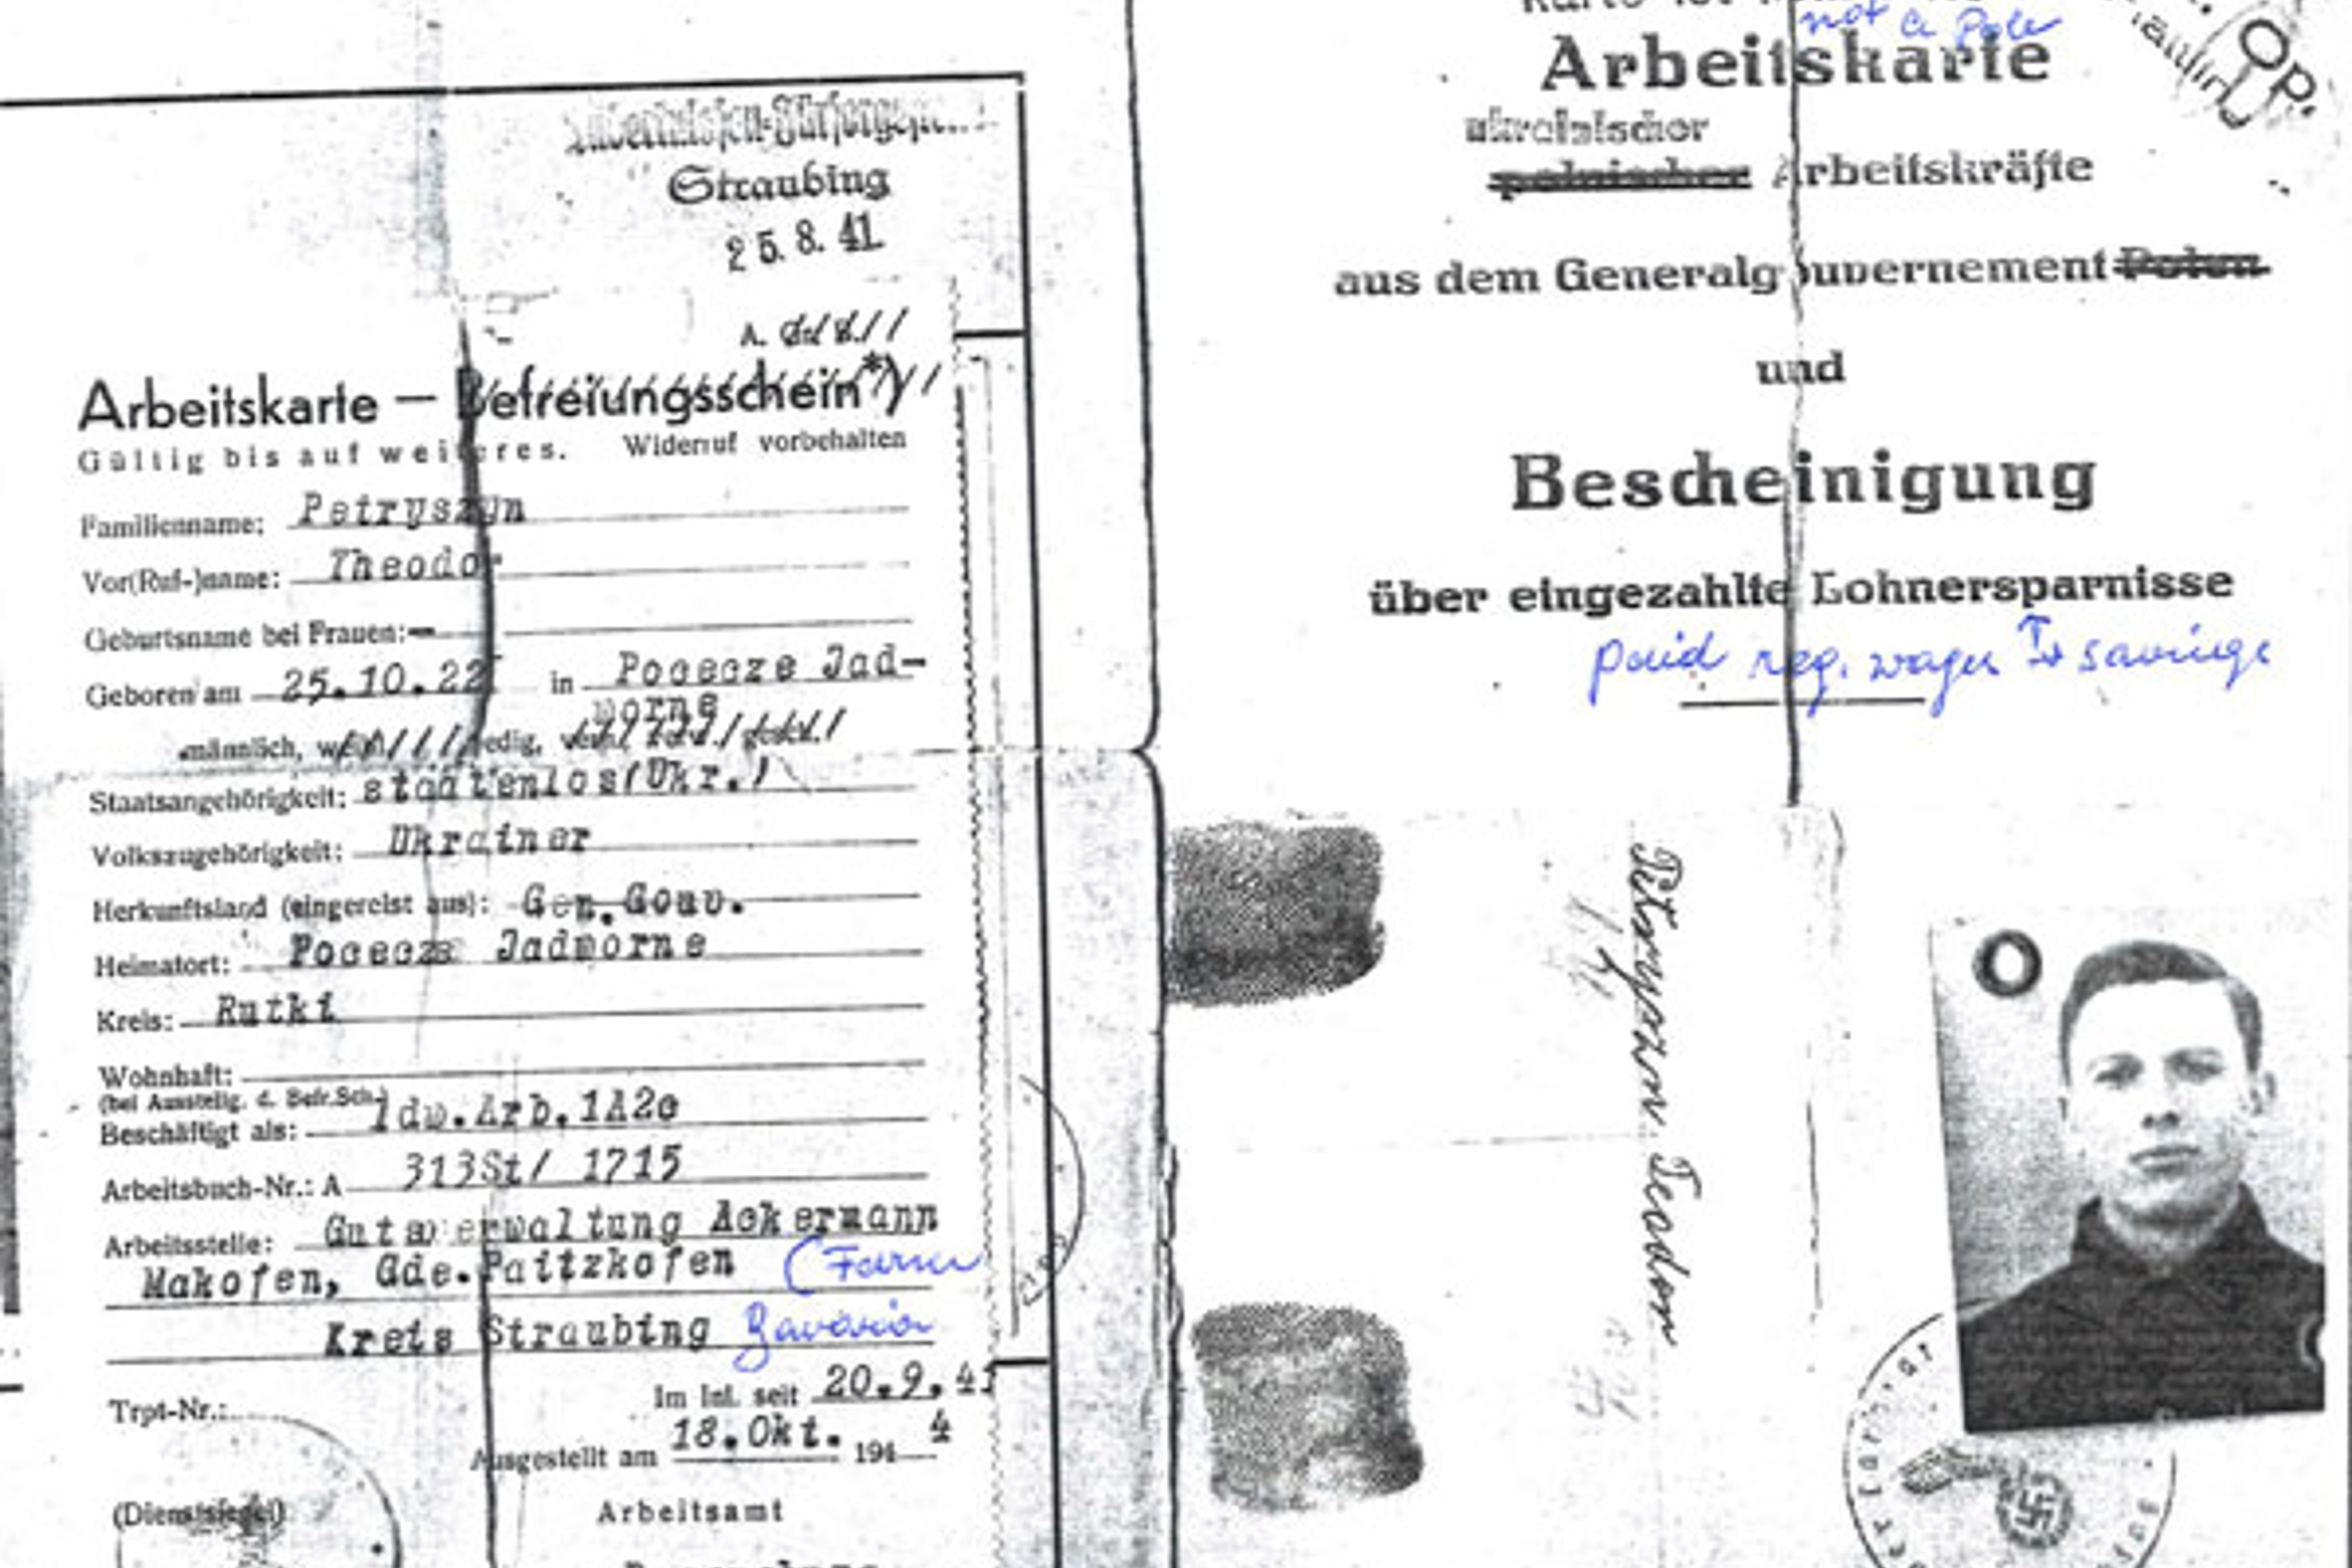 Straubing
25.8.41
A.
Arbeitskarte — Befreiungsschein*)
Gültig bis auf weiteres. Widerruf vorbehalten
Familienname: Petryszyn
Vor(Ruf-)name: Theodor
Geburtsname bei Frauen: —
Geboren am 25.10.22 in Pocecze Jad-
worne
männlich, ledig,
Staatsangehörigkeit: staatenlos(Ukr.)
Volkszugehörigkeit: Ukrainer
Herkunftsland (eingereist aus): Gen.Gouv.
Heimatort: Pocecze Jadworne
Kreis: Rutki
Wohnhaft:
(bei Ausstellg. d. Befr.Sch.)
Beschäftigt als: ldw.Arb.1A2c
Arbeitsbuch-Nr.: A 313St/ 1715
Arbeitsstelle: Gutsverwaltung Ackermann
Makofen, Gde.Paitzkofen (Farm
Kreis Straubing Bavaria
Trpt-Nr.: Im Inl. seit 20.9.41
Ausgestellt am 18.Okt. 194 4
(Dienstsiegel) Arbeitsamt
not a Pole
Arbeitskarte
ukrainischer
polnischer Arbeitskräfte
aus dem Generalgouvernement Polen
und
Bescheinigung
über eingezahlte Lohnersparnisse
paid reg. wages + savings
Petryszyn Teodor